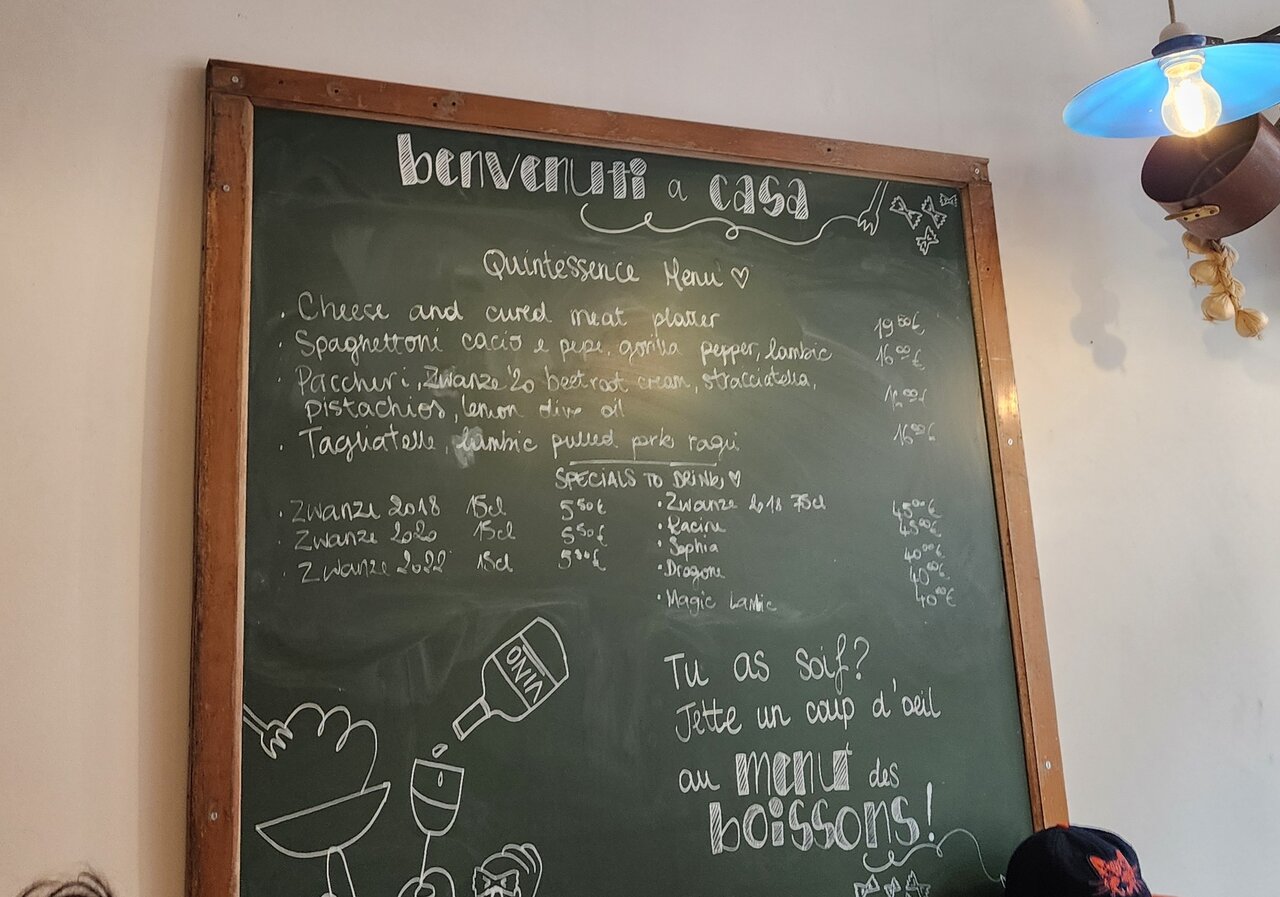 benvenuti a casa
Quintessence Menu ♡
· Cheese and cured meat platter 19 50€
· Spaghettoni cacio e pepe, gorilla pepper, lambic 16 00€
· Paccheri, Zwanze '20 beetroot cream, stracciatella,
pistachios, lemon olive oil
· Tagliatelle, lambic pulled pork ragù 16 00€
SPECIALS TO DRINK ♡
· Zwanze 2018 15cl 5 50€
· Zwanze 2020 15cl 5 50€
· Zwanze 2022 15cl 5 50€
· Zwanze 2018 75cl 45 00€
· Racine 45 00€
· Sophia 40 00€
· Dragone 40 00€
· Magic Lambic 40 00€
VINO
Tu as soif?
Jette un coup d'oeil
au menu des
boissons!